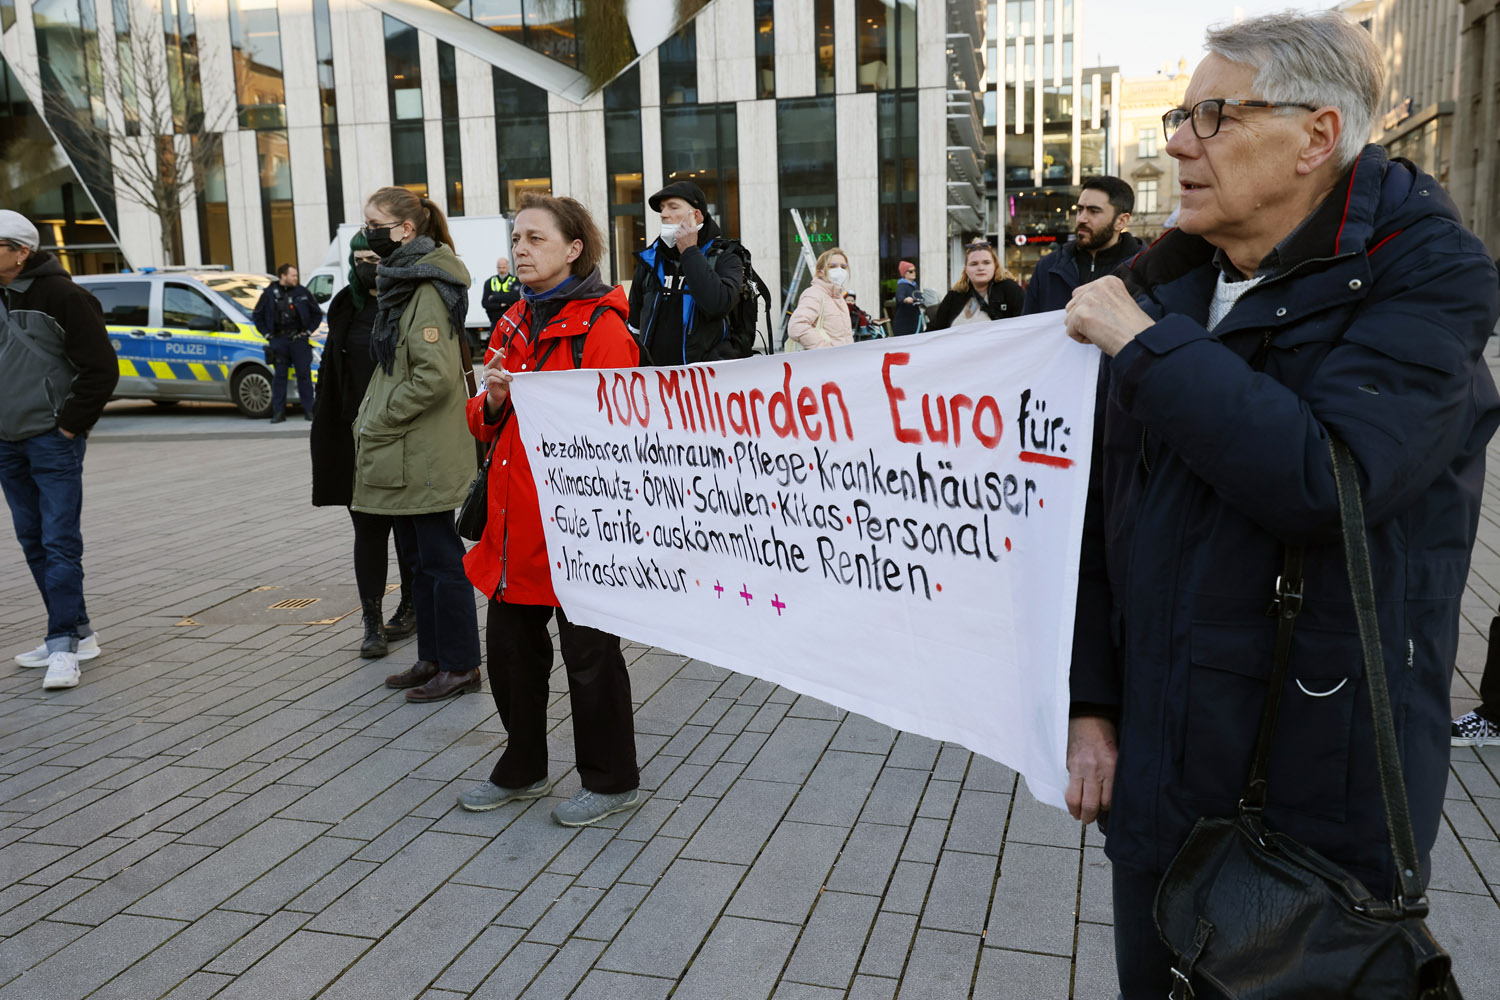 100 Milliarden Euro für:
· bezahlbaren Wohnraum · Pflege · Krankenhäuser ·
· Klimaschutz · ÖPNV · Schulen · Kitas · Personal ·
· Gute Tarife · auskömmliche Renten ·
· Infrastruktur · + + +
POLIZEI
ROLEX
vodafone